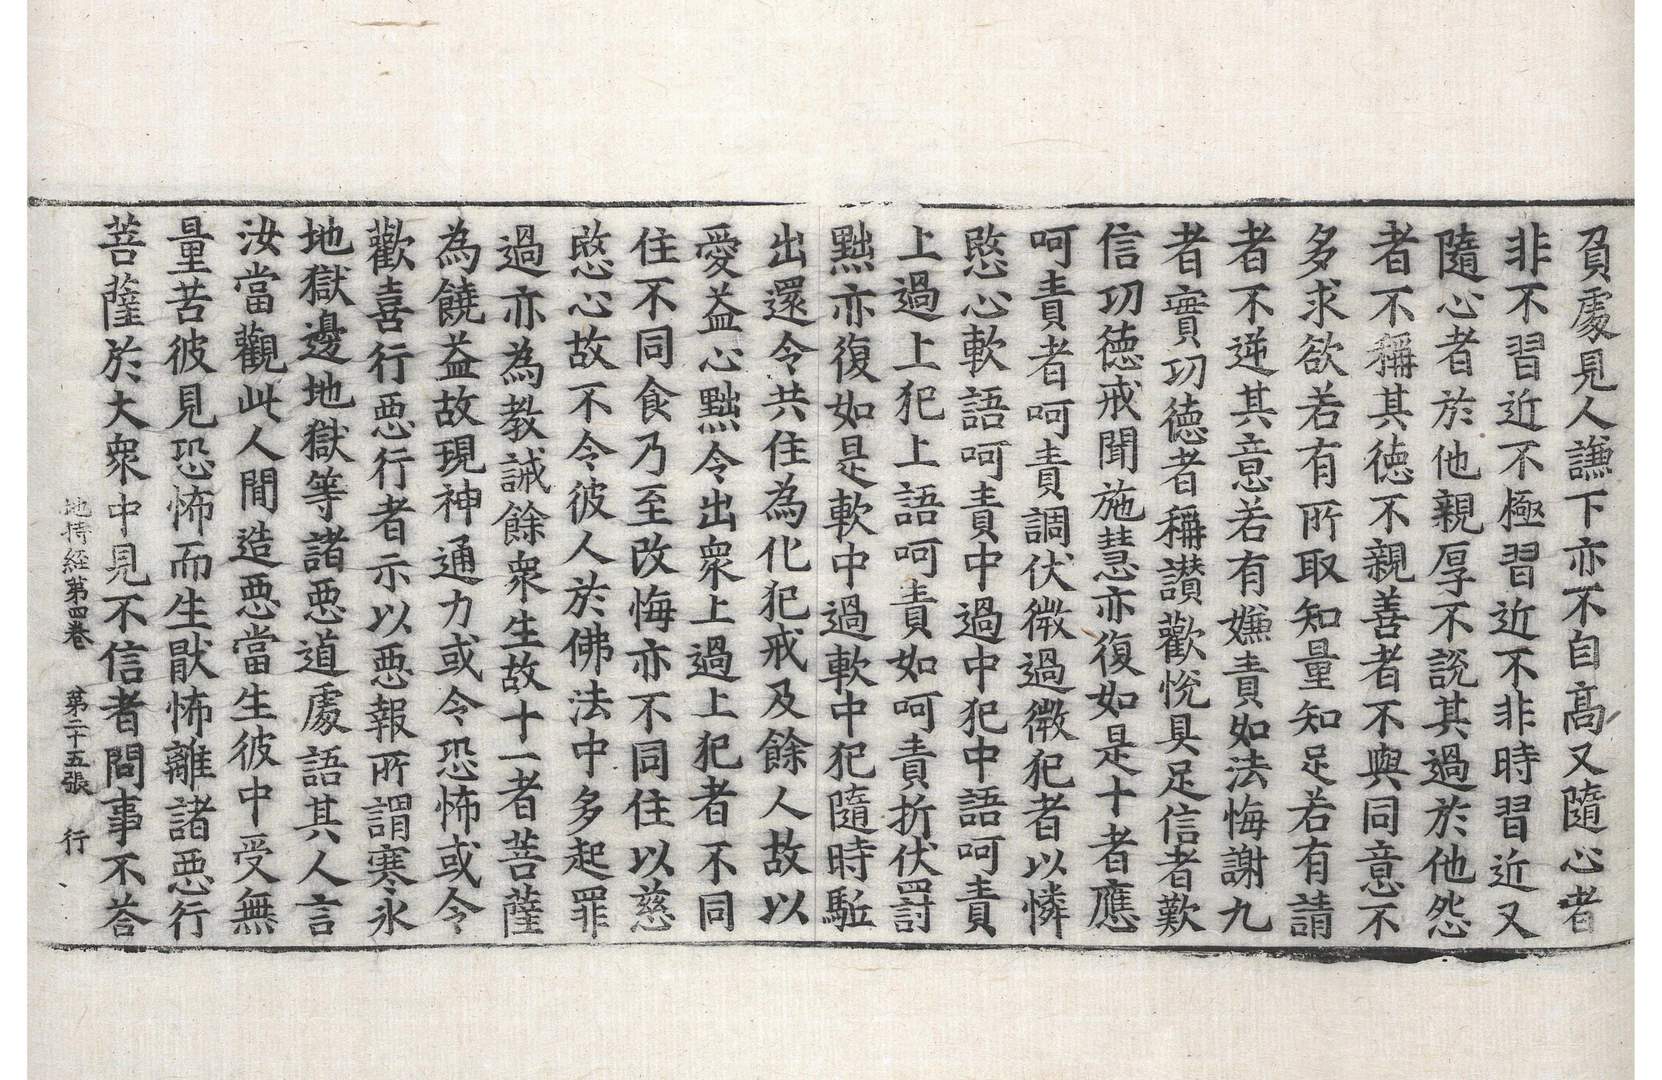 負處見人謙下亦不自高又隨心者
非不習近不極習近不非時習近又
隨心者於他親厚不說其過於他怨
者不稱其德不親善者不與同意不
多求欲若有所取知量知足若有請
者不逆其意若有嫌責如法悔謝九
者實功德者稱讚歡悅具足信者歎
信功德戒聞施慧亦復如是十者應
呵責者呵責調伏微過微犯者以憐
愍心軟語呵責中過中犯中語呵責
上過上犯上語呵責如呵責折伏罸
黜亦復如是軟中過軟中犯隨時駈
出還令共住為化犯戒及餘人故以
愛益心黜令出衆上過上犯者不同
住不同食乃至改悔亦不同住以慈
愍心故不令彼人於佛法中多起罪
過亦為教誡餘衆生故十一者菩薩
為饒益故現神通力或令恐怖或令
歡喜行惡行者示以惡報所謂寒氷
地獄邊地獄等諸惡道處語其人言
汝當觀此人間造惡當生彼中受無
量苦彼見恐怖而生猒怖離諸惡行
菩薩於大衆中見不信者問事不荅
地持経第四卷 第二十五張 行